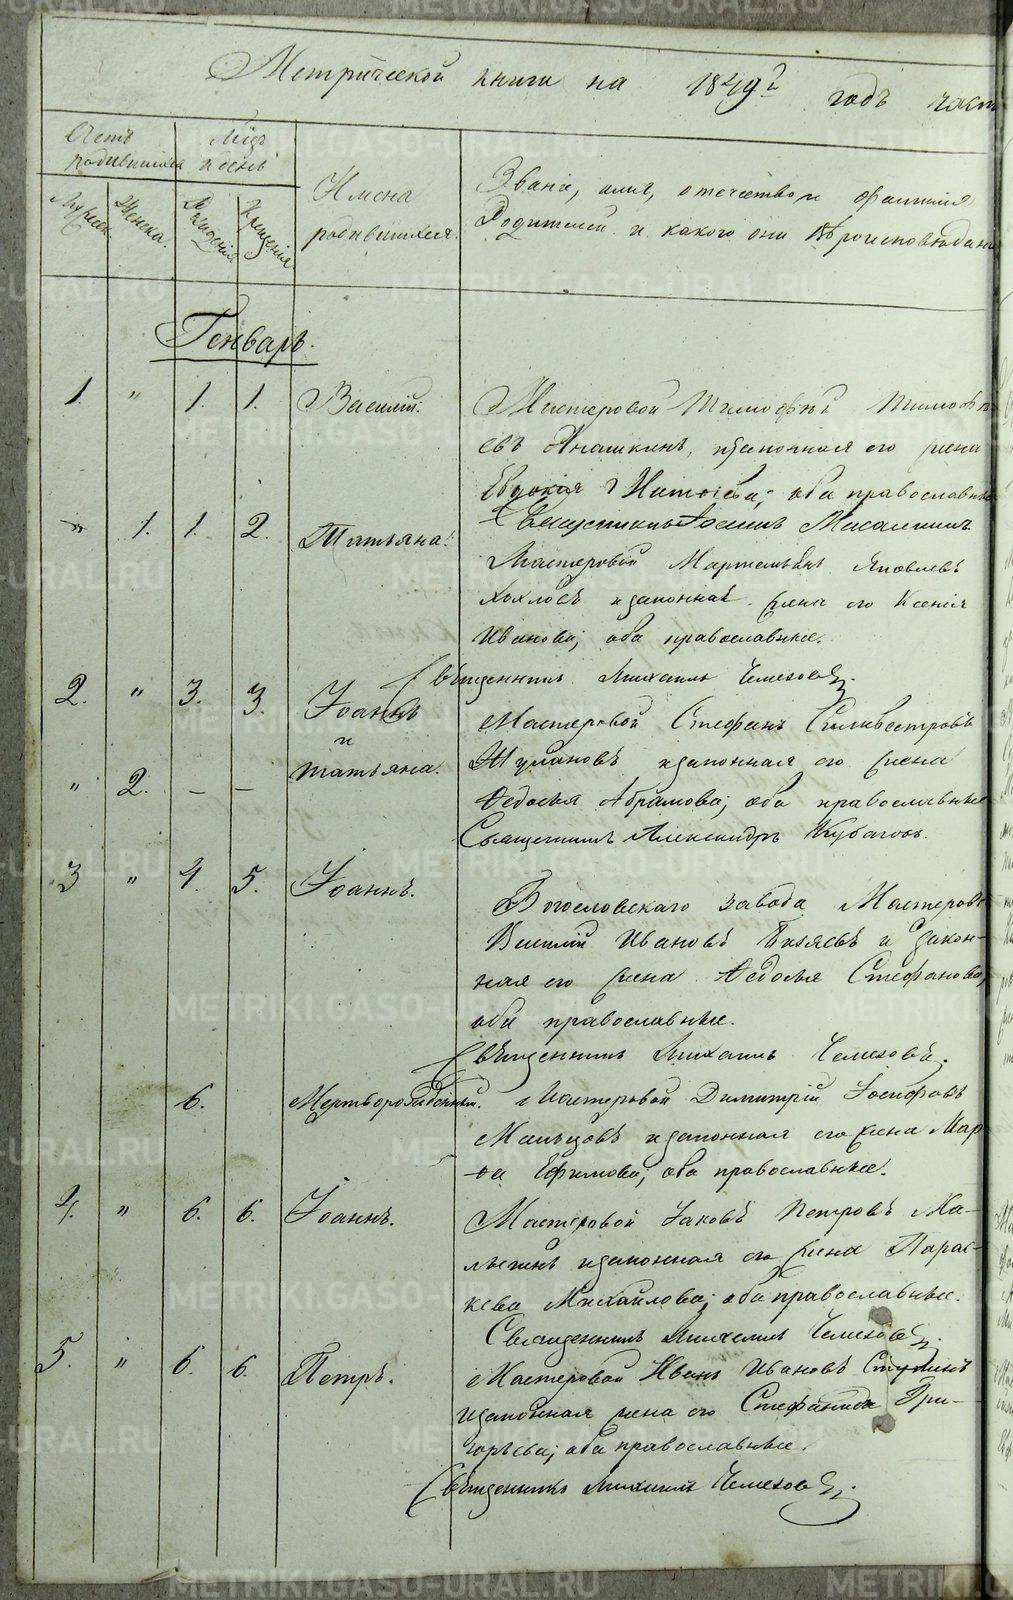 Метрической книги на 1849й годъ част
Счетъ родившихся
Мѣсяцъ и день
Имена родившихся.
Званіе, имя, отечество и фамилія
Родителей и какого они Вѣроисповѣдані
Мужск.
Женска.
Рожденія
Крещенія.
Генварь.
1. " 1. 1. Василій. Мастеровой Тимофей Тимофѣ
евъ Анашкинъ, и законная его жена
Евдокія Никитина; оба православные
Священникъ Іоаннъ
" 1. 1. 2. Татьяна. Мастеровой Яковлевъ
Хохловъ и законная жена его Ксенія
Иванова; оба православные.
Священникъ Михаилъ Чемезовъ.
2. " 3. 3. Іоаннъ Мастеровой Стефанъ Силивестровъ
и
" 2. – – Татьяна. Тумановъ и законная его жена
Ѳедосья Абрамова; оба православные
Священникъ Александръ
3 " 4. 5. Іоаннъ. Богословскаго завода Мастеровой
Василій Ивановъ и закон-
ная его жена Ѳедосья Стефанова,
оба православные.
Священникъ Михаилъ Чемезовъ.
6. Мертворожденный. Мастеровой Димитрій Іосифовъ
Мальцовъ и законная его жена Мар
ѳа Ефимова; оба православные.
4. " 6. 6. Іоаннъ. Мастеровой Іаковъ Петровъ Ма-
и законная его жена Парас-
кева Михайлова; оба православные.
Священникъ Михаилъ Чемезовъ.
5. " 6. 6. Петръ. Мастеровой Иванъ Ивановъ Ступинъ
и законная жена его Стефанида Гри-
горьева; оба православные.
Священникъ Михаилъ Чемезовъ.
METRIKI.GASO-URAL.RU